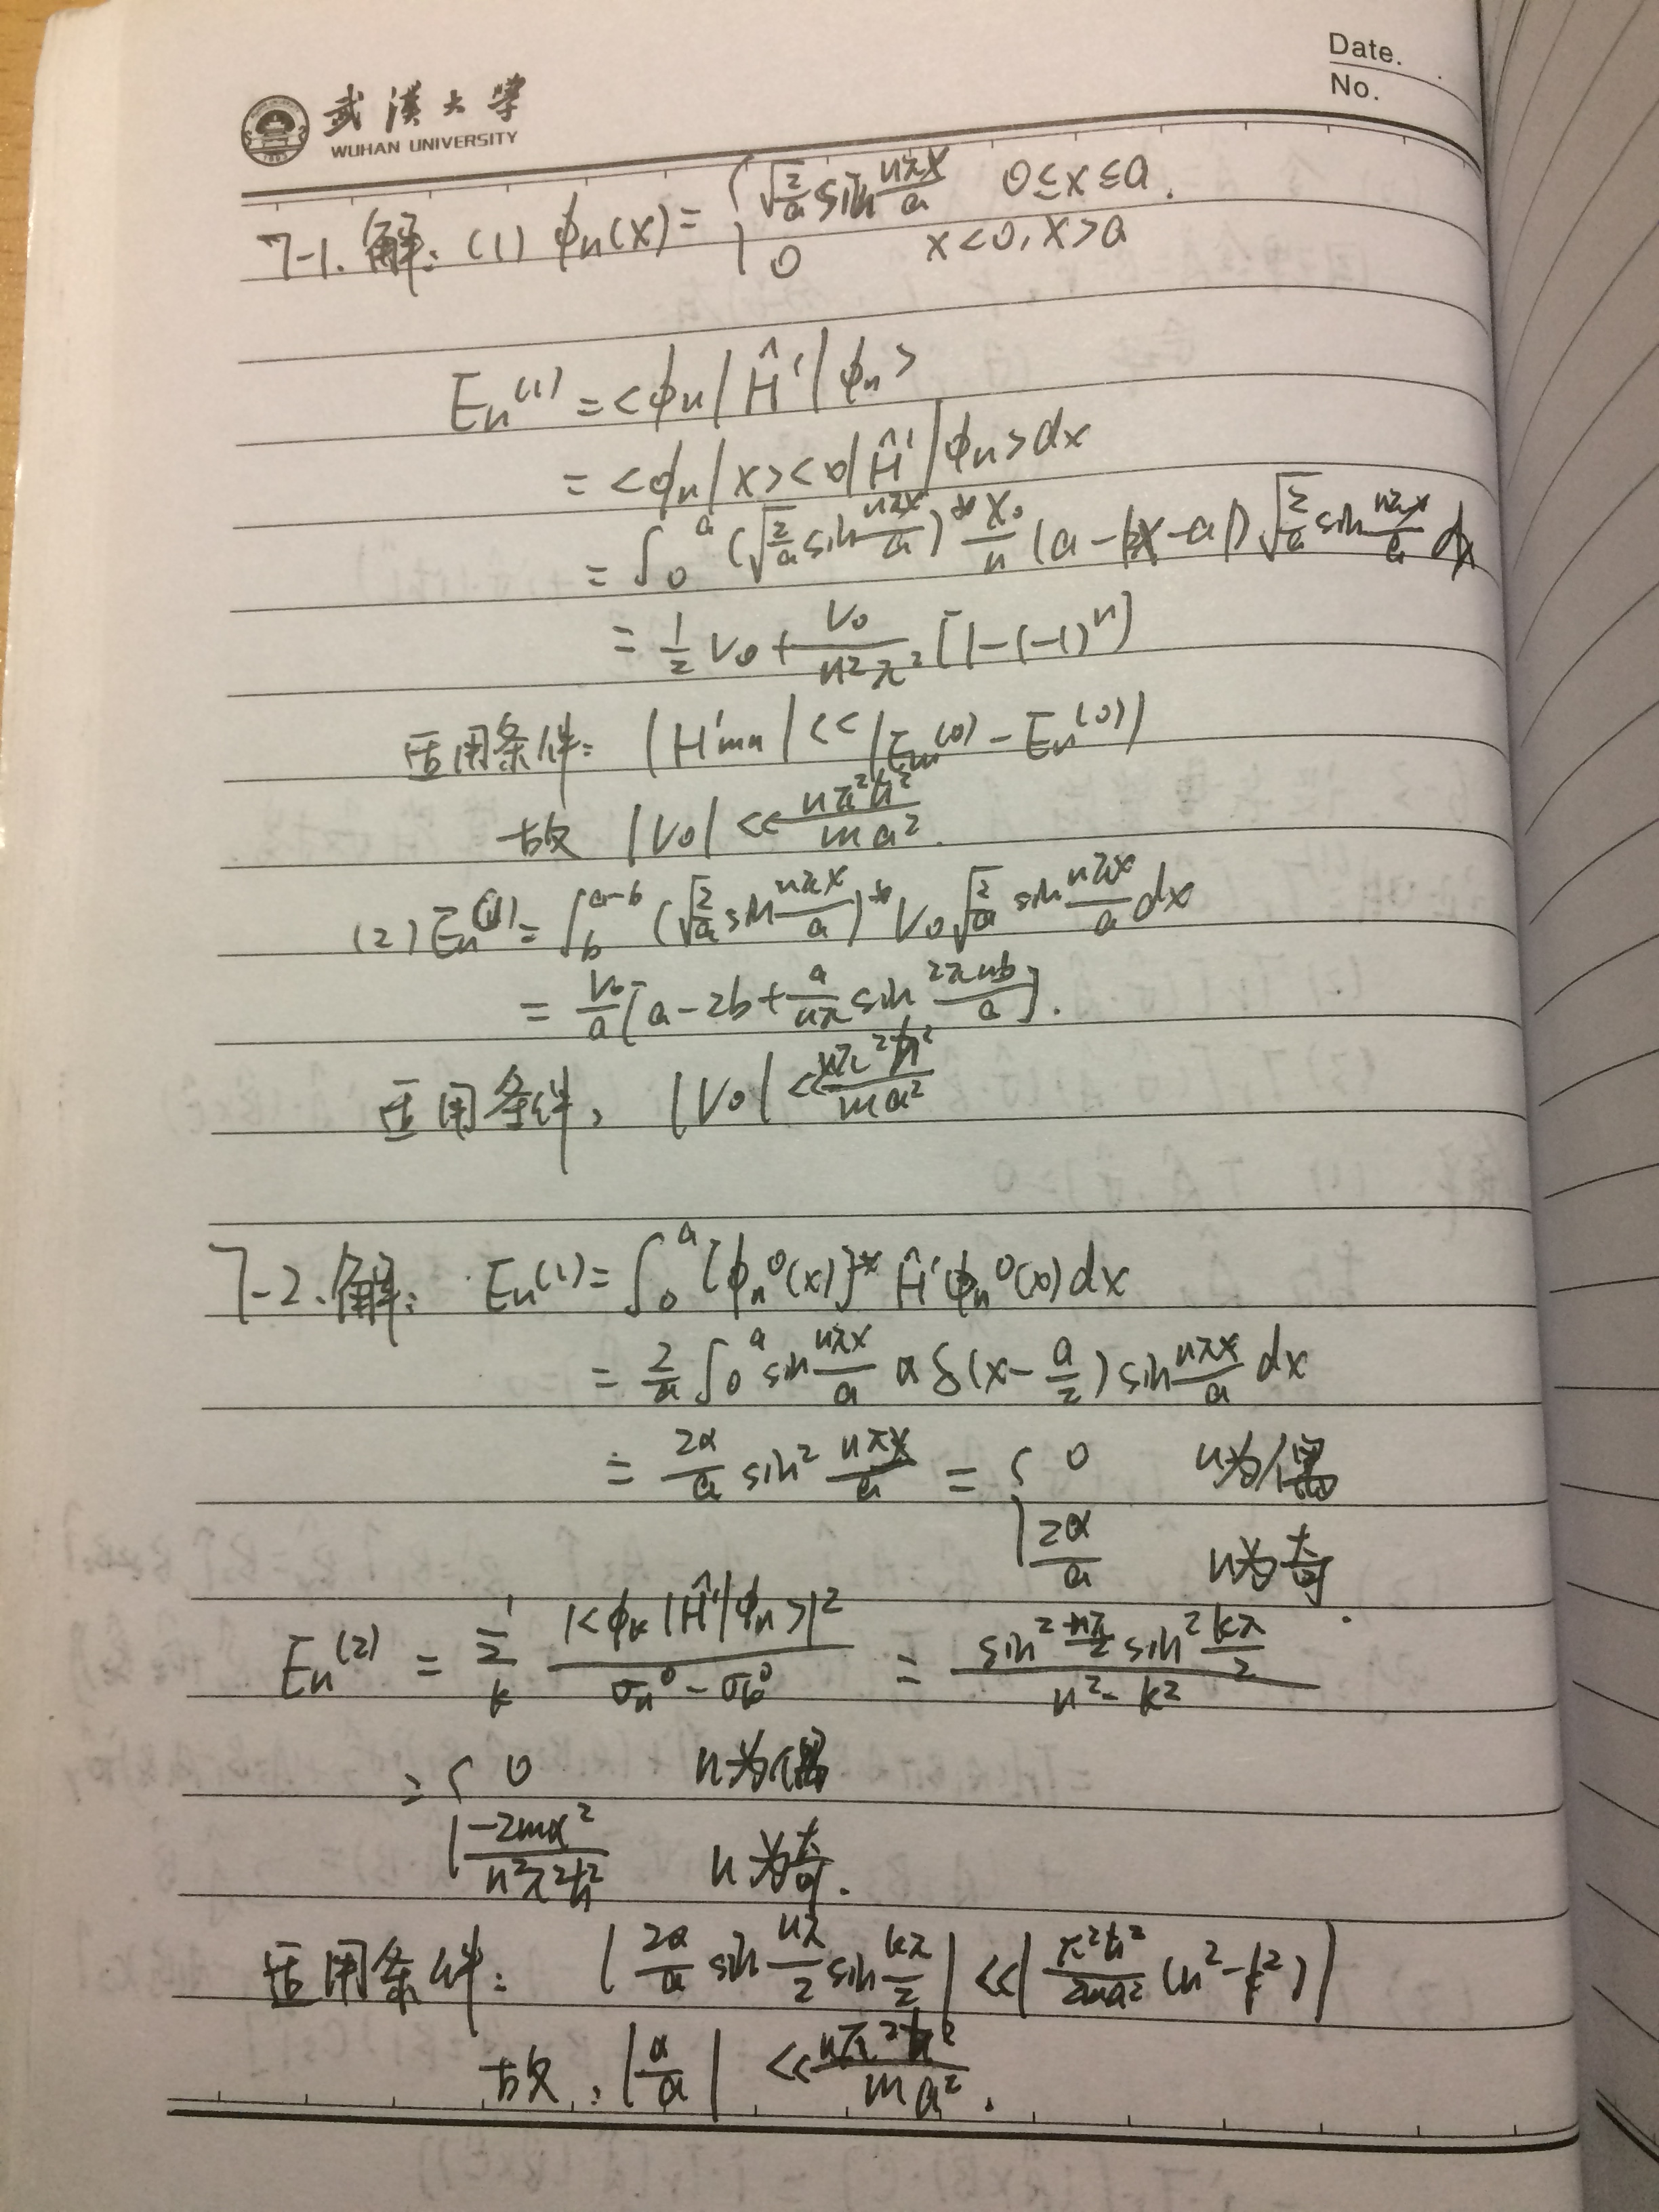 Date.
No.
武漢大學
WUHAN UNIVERSITY
7-1. 解: (1) ϕn(x) = { √(2/a) sin nπx/a 0≤x≤a.
0 x<0, x>a
En⁽¹⁾ = <ϕn|Ĥ'|ϕn>
= <ϕn|x><x|Ĥ'|ϕn>dx
= ∫₀ᵃ (√(2/a) sin nπx/a)* (a-|2x-a|) √(2/a) sin nπx/a dx
= 1/2 V₀ + V₀/(n²π²) [1-(-1)ⁿ]
适用条件: |H'mn| << |Em⁽⁰⁾ - En⁽⁰⁾|
故 |V₀| << nπ²ħ²/ma².
(2) En⁽¹⁾ = ∫_b^(a-b) (√(2/a) sin nπx/a)* V₀ √(2/a) sin nπx/a dx
= V₀/a [a-2b + a/nπ sin 2πnb/a].
适用条件, |V₀| << nπ²ħ²/ma²
7-2. 解: En⁽¹⁾ = ∫₀ᵃ [ϕn⁰(x)]* Ĥ' ϕn⁰(x) dx
= 2/a ∫₀ᵃ sin nπx/a α δ(x - a/2) sin nπx/a dx
= 2α/a sin² nπx/a = { 0 n为偶
2α/a n为奇.
En⁽²⁾ = Σ'k |<ϕk|Ĥ'|ϕn>|² / (σn⁰ - σk⁰) = sin² nπ/2 sin² kπ/2 / (n² - k²)
= { 0 n为偶
-2mα²/n²π²ħ² n为奇.
适用条件: |2α/a sin nπ/2 sin kπ/2| << |π²ħ²/2ma² (n²-k²)|
故, |α/a| << nπ²ħ²/ma².